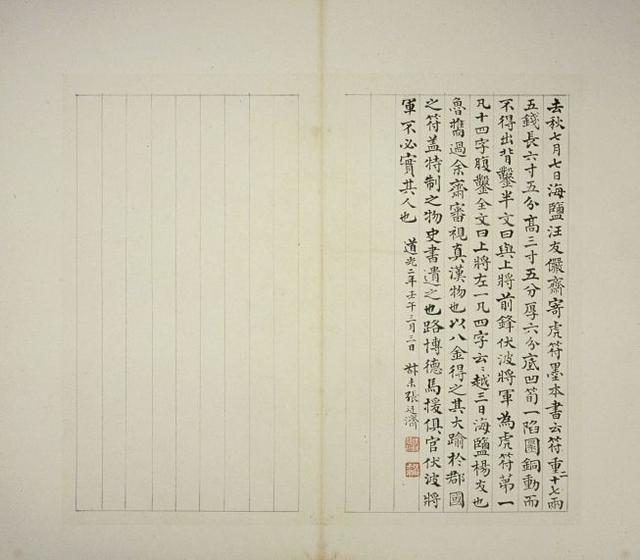 去秋七月七日海鹽汪友儼齋寄虎符墨本書云符重二十七兩
五錢長六寸五分高三寸五分厚六分底凹筍一陷圜銅動而
不得出背鑿半文曰與上將前鋒伏波將軍為虎符苐一
凡十四字腹鑿全文曰上將左一凡四字云〻越三日海鹽楊友也
魯攜過余齋審視真漢物也以八金得之其大踰於郡國
之符蓋特制之物史書遺之也路博德馬援俱官伏波將
軍不必實其人也 道光二年壬午三月三日 未張廷濟